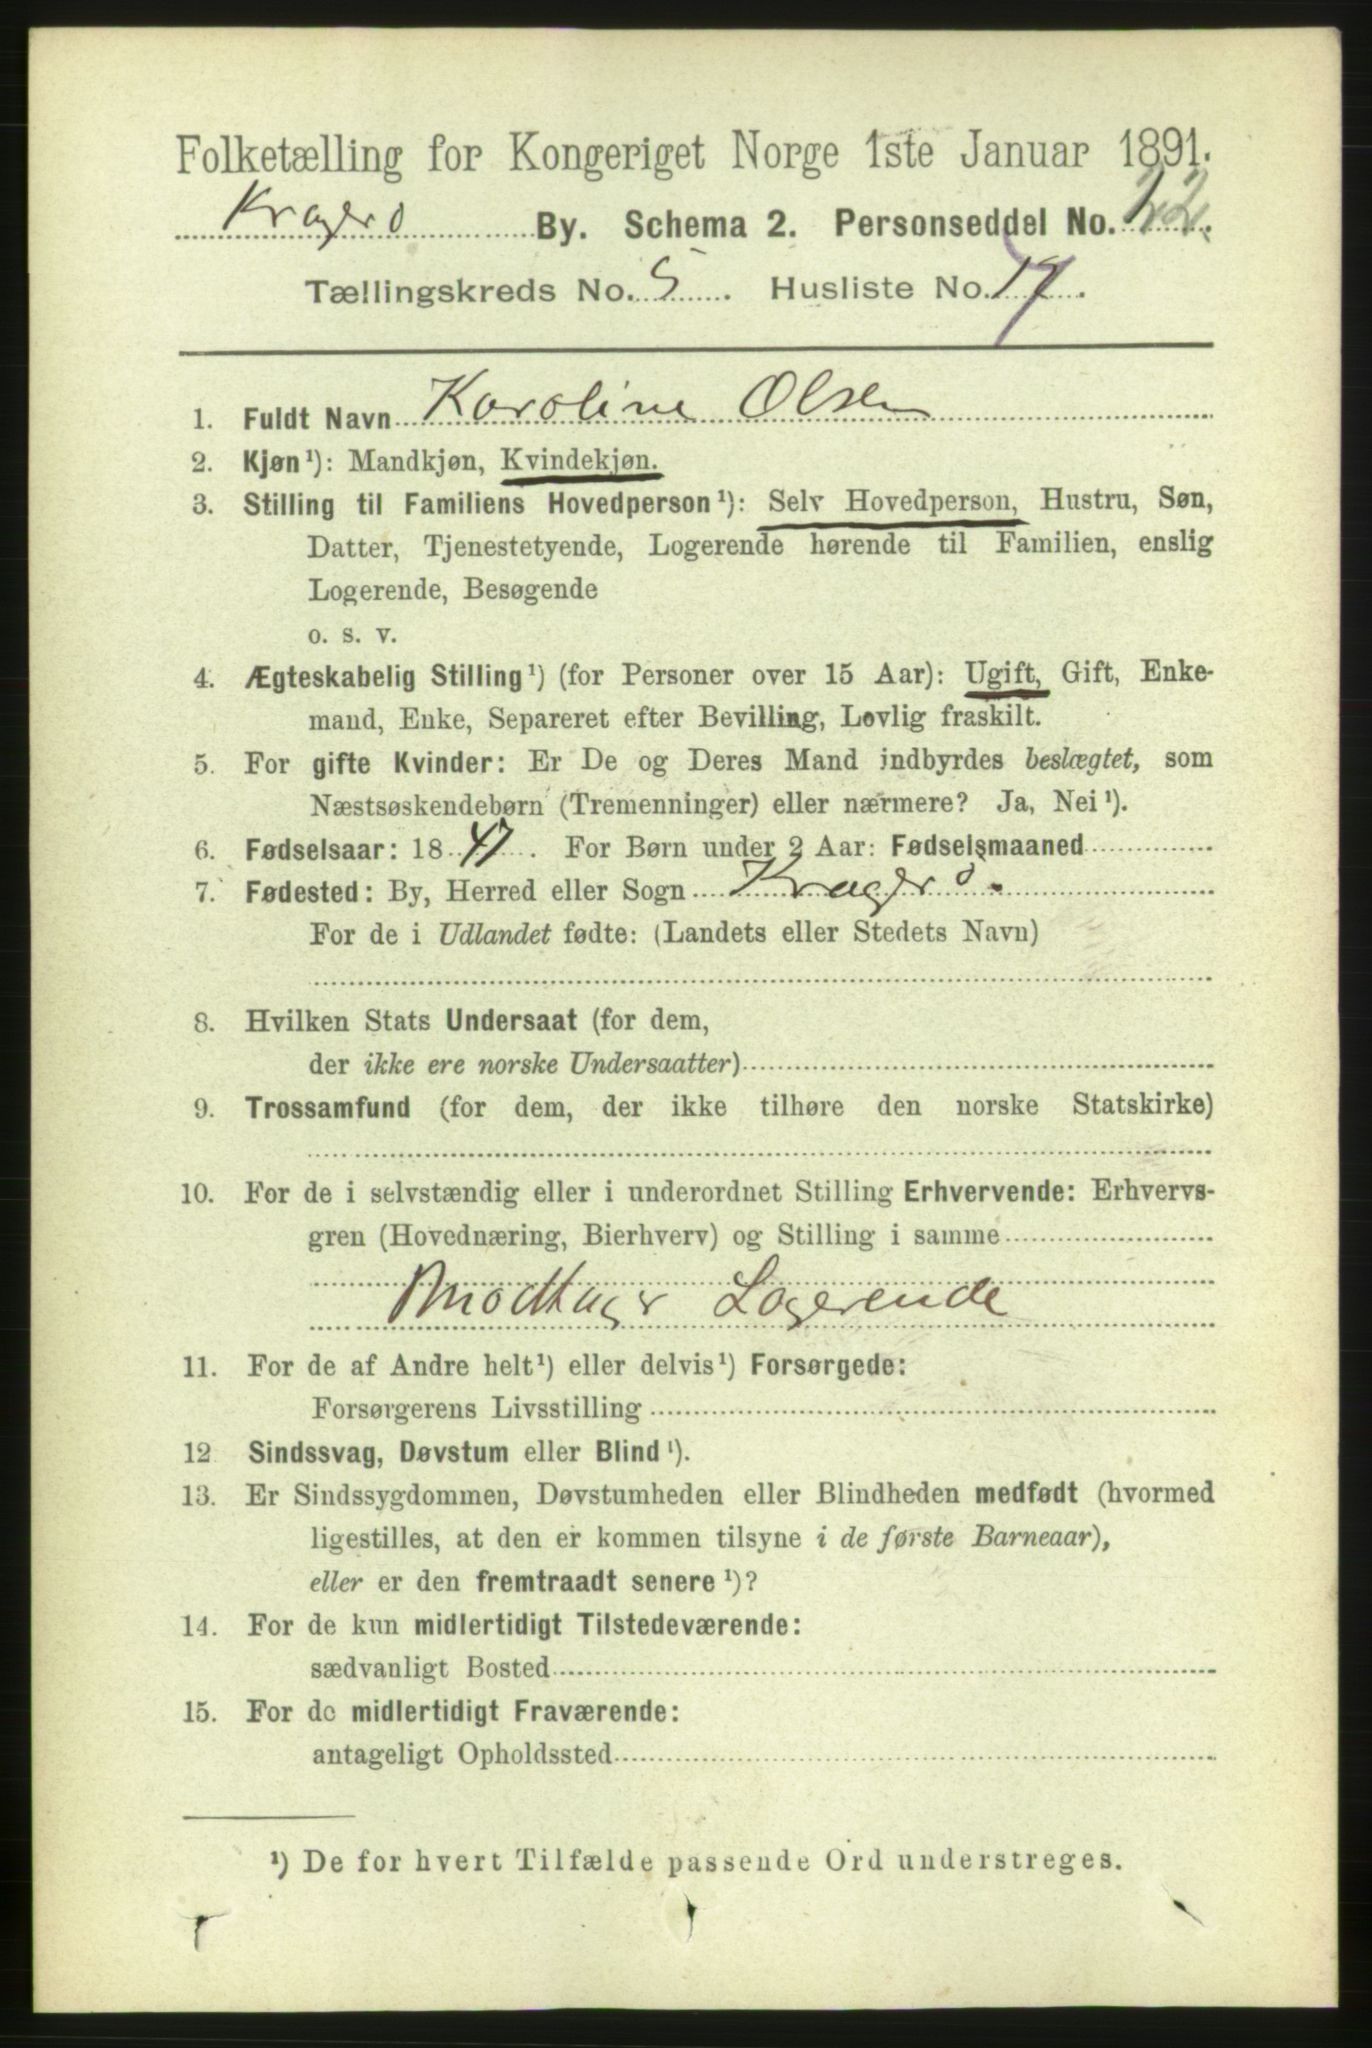 Folketælling for Kongeriget Norge 1ste Januar 1891.
Kragerø By. Schema 2. Personseddel No. 22.
Tællingskreds No. 5. Husliste No. 19.
1. Fuldt Navn Karoline Olsen
2. Kjøn¹): Mandkjøn, Kvindekjøn.
3. Stilling til Familiens Hovedperson¹): Selv Hovedperson, Hustru, Søn,
Datter, Tjenestetyende, Logerende hørende til Familien, enslig
Logerende, Besøgende
o. s. v.
4. Ægteskabelig Stilling¹) (for Personer over 15 Aar): Ugift, Gift, Enke-
mand, Enke, Separeret efter Bevilling, Lovlig fraskilt.
5. For gifte Kvinder: Er De og Deres Mand indbyrdes beslægtet, som
Næstsøskendebørn (Tremenninger) eller nærmere? Ja, Nei¹).
6. Fødselsaar: 1847. For Børn under 2 Aar: Fødselsmaaned
7. Fødested: By, Herred eller Sogn Kragerø.
For de i Udlandet fødte: (Landets eller Stedets Navn)
8. Hvilken Stats Undersaat (for dem,
der ikke ere norske Undersaatter)
9. Trossamfund (for dem, der ikke tilhøre den norske Statskirke)
10. For de i selvstændig eller i underordnet Stilling Erhvervende: Erhvervs-
gren (Hovednæring, Bierhverv) og Stilling i samme
Modtager Logerende
11. For de af Andre helt¹) eller delvis¹) Forsørgede:
Forsørgerens Livsstilling
12 Sindssvag, Døvstum eller Blind¹).
13. Er Sindssygdommen, Døvstumheden eller Blindheden medfødt (hvormed
ligestilles, at den er kommen tilsyne i de første Barneaar),
eller er den fremtraadt senere¹)?
14. For de kun midlertidigt Tilstedeværende:
sædvanligt Bosted
15. For de midlertidigt Fraværende:
antageligt Opholdssted
¹) De for hvert Tilfælde passende Ord understreges.